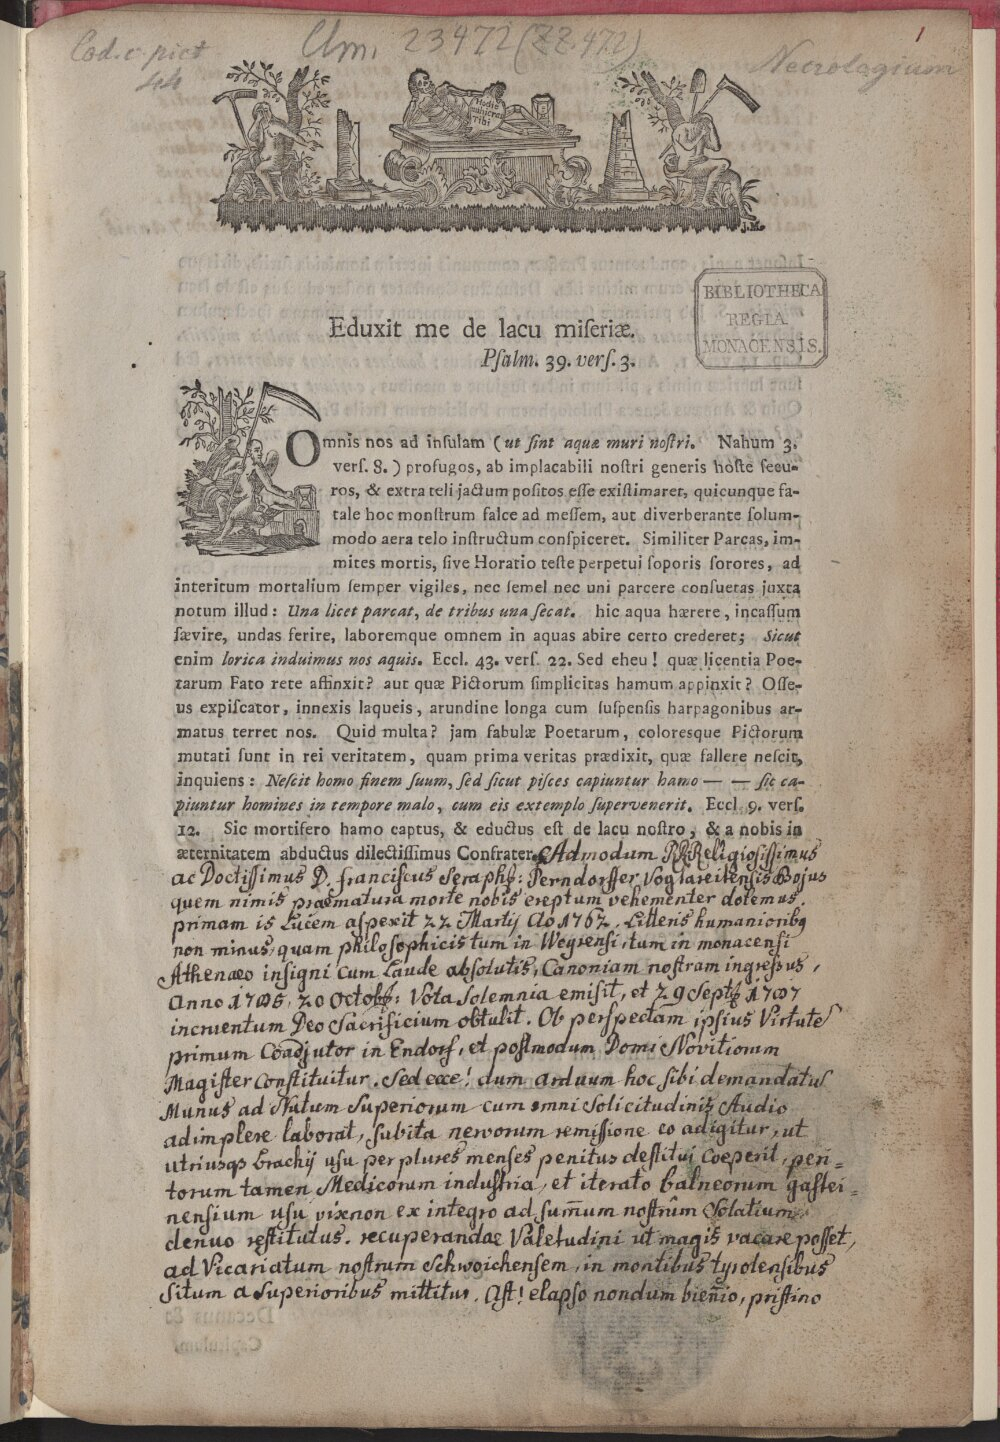 Cod. c. pict
44
Clm. 23472 (ZZ. 472)
Necrologium
1
Hodie
mihi cras
tibi
J.M.
BIBLIOTHECA
REGIA
MONACENSIS.
Eduxit me de lacu miſeriæ.
Pſalm. 39. verſ. 3.
Omnis nos ad inſulam (ut ſint aquæ muri noſtri. Nahum 3.
verſ. 8.) profugos, ab implacabili noſtri generis hoſte ſecu-
ros, & extra teli jactum poſitos eſſe exiſtimaret, quicunque fa-
tale hoc monſtrum falce ad meſſem, aut diverberante ſolum-
modo aera telo inſtructum conſpiceret. Similiter Parcas, im-
mites mortis, ſive Horatio teſte perpetui ſoporis ſorores, ad
interitum mortalium ſemper vigiles, nec ſemel nec uni parcere conſuetas juxta
notum illud: Una licet parcat, de tribus una ſecat. hic aqua hærere, incaſſum
ſævire, undas ferire, laboremque omnem in aquas abire certo crederet; Sicut
enim lorica induimus nos aquis. Eccl. 43. verſ. 22. Sed eheu! quæ licentia Poe-
tarum Fato rete affinxit? aut quæ Pictorum ſimplicitas hamum appinxit? Oſſe-
us expiſcator, innexis laqueis, arundine longa cum ſuſpenſis harpagonibus ar-
matus terret nos. Quid multa? jam fabulæ Poetarum, coloresque Pictorum
mutati ſunt in rei veritatem, quam prima veritas prædixit, quæ fallere neſcit,
inquiens: Neſcit homo finem ſuum, ſed ſicut piſces capiuntur hamo — — ſic ca-
piuntur homines in tempore malo, cum eis extemplo ſupervenerit. Eccl. 9. verſ.
12. Sic mortifero hamo captus, & eductus eſt de lacu noſtro, & a nobis in
æternitatem abductus dilectiſſimus Confrater Admodum RRReligiosissimus
ac Doctissimus D. franciscus Seraph: Perndorffer Voglareitensis Bojus
quem nimis praematura morte nobis ereptum vehementer dolemus.
primam is Lucem aspexit 22 Martij Ao 1762. Litteris humanioribq
non minus, quam philosophicis tum in Weyrensi, tum in monacensi
Athenaeo insigni cum Laude absolutis, Canoniam nostram ingressus,
Anno 1785, 20 Octob: Vota Solemnia emisit, et 29 Sept 1787
incruentum Deo Sacrificium obtulit. Ob perspectam ipsius Virtute
primum Coadjutor in Endorf, et postmodum Domi Novitiorum
Magister Constituitur. Sed ecce! dum arduum hoc sibi demandatu
Munus ad Nutum Superiorum cum omni Solicitudinis Studio
adimplere laborat, subita nervorum remissione eo adigitur, ut
utriusqs brachij usu per plures menses penitus destitui Coeperit, peri=
torum tamen Medicorum industria, et iterato balneorum gastei=
nensium usu vixnon ex integro ad sum̄um nostrûm Solatium
denuo restitutus. recuperandae Valetudini ut magis vacare posset,
ad Vicariatum nostrum Schwoichensem, in montibus tyrolensibus
Situm a Superioribus mittitur. Ast! elapso nondum bien̄io, pristino